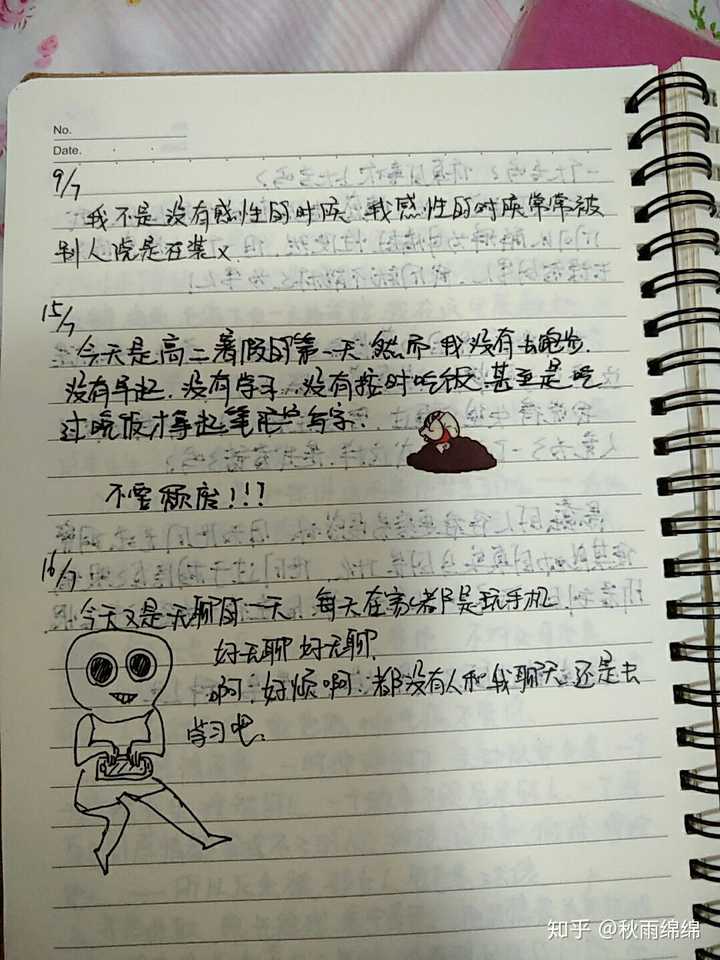 No.
Date.
9/7
我不是没有感性的时候 我感性的时候常常被
别人说是在装X.
15/7
今天是高二暑假的第一天 然而我没有去跑步.
没有早起.没有学习.没有按时吃饭 甚至是吃
过晚饭才拿起笔写字.
不要颓废!!!
16/7
今天又是无聊的一天.每天在家都是玩手机
好无聊 好无聊.
啊.好烦啊.都没有人和我聊天.还是去
学习吧.
知乎 @秋雨绵绵